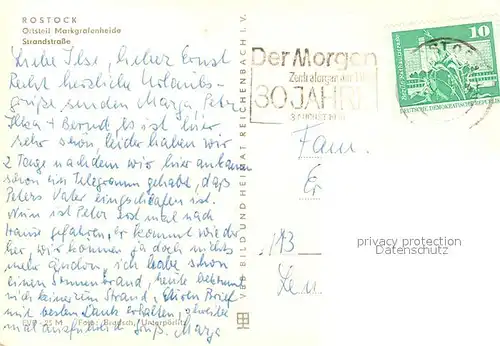 ROSTOCK
Ortsteil Markgrafenheide
Strandstraße
Liebe Ilse, lieber Ernst
Recht herzliche Urlaubs-
grüße senden Marga, Peter
+ Bernd, es ist hier
sehr schön, leider haben wir
2 Tage nachdem wir hier ankamen
schon ein Telegramm gehabt, daß
Peters Vater eingschlafen ist.
Nun ist Peter erst mal nach
Hause gefahren, er kommt wieder
her, wir können ja doch nichts
mehr ändern, ich habe schon
einen Sonnenbrand, heute
mich keiner zum Strand, Brief
mit besten Dank erhalten,
mal ausführlich Gruß. Marga
Foto: Brutsch, Unterpörlitz
VEB BILD UND HEIMAT REICHENBACH I. V.
Der Morgen
Zentralorgan der
30 JAHRE
Fam.
privacy protection
watermark
10
DEUTSCHE DEMOKRATISCHE REPUBLIK